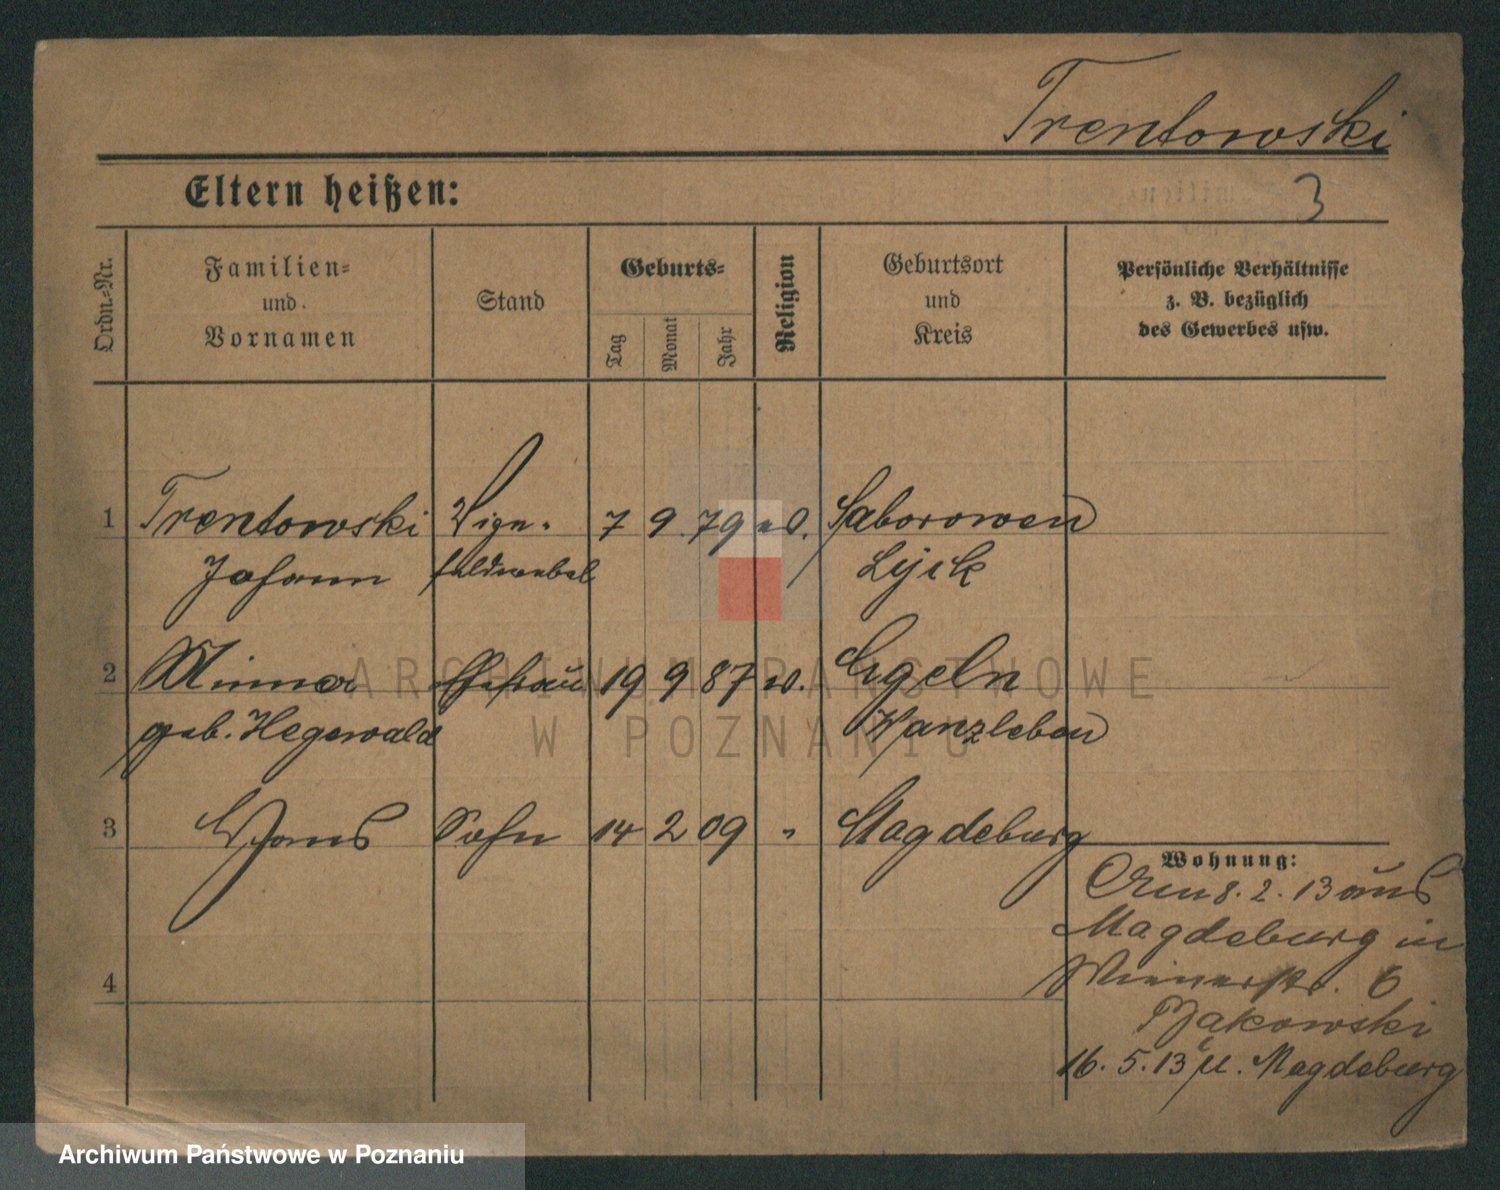 Trentowski
Eltern heißen:
3
Ordn.=Nr.
Familien=
und
Vornamen
Stand
Geburts=
Tag
Monat
Jahr
Religion
Geburtsort
und
Kreis
Persönliche Verhältnisse
z. B. bezüglich
des Gewerbes usw.
1 Trentowski 7 9 79 Saborowen
Johann feldwebel Lyck
2 Minna Ehefrau 19 9 87 Egeln
geb. Hegewald Wanzleben
3 Hans Sohn 14 2 09 " Magdeburg
4
Wohnung:
8. 2. 13 aus
Magdeburg in
Wienerstr. 6
16. 5. 13 Magdeburg
ARCHIWUM PAŃSTWOWE
W POZNANIU
Archiwum Państwowe w Poznaniu